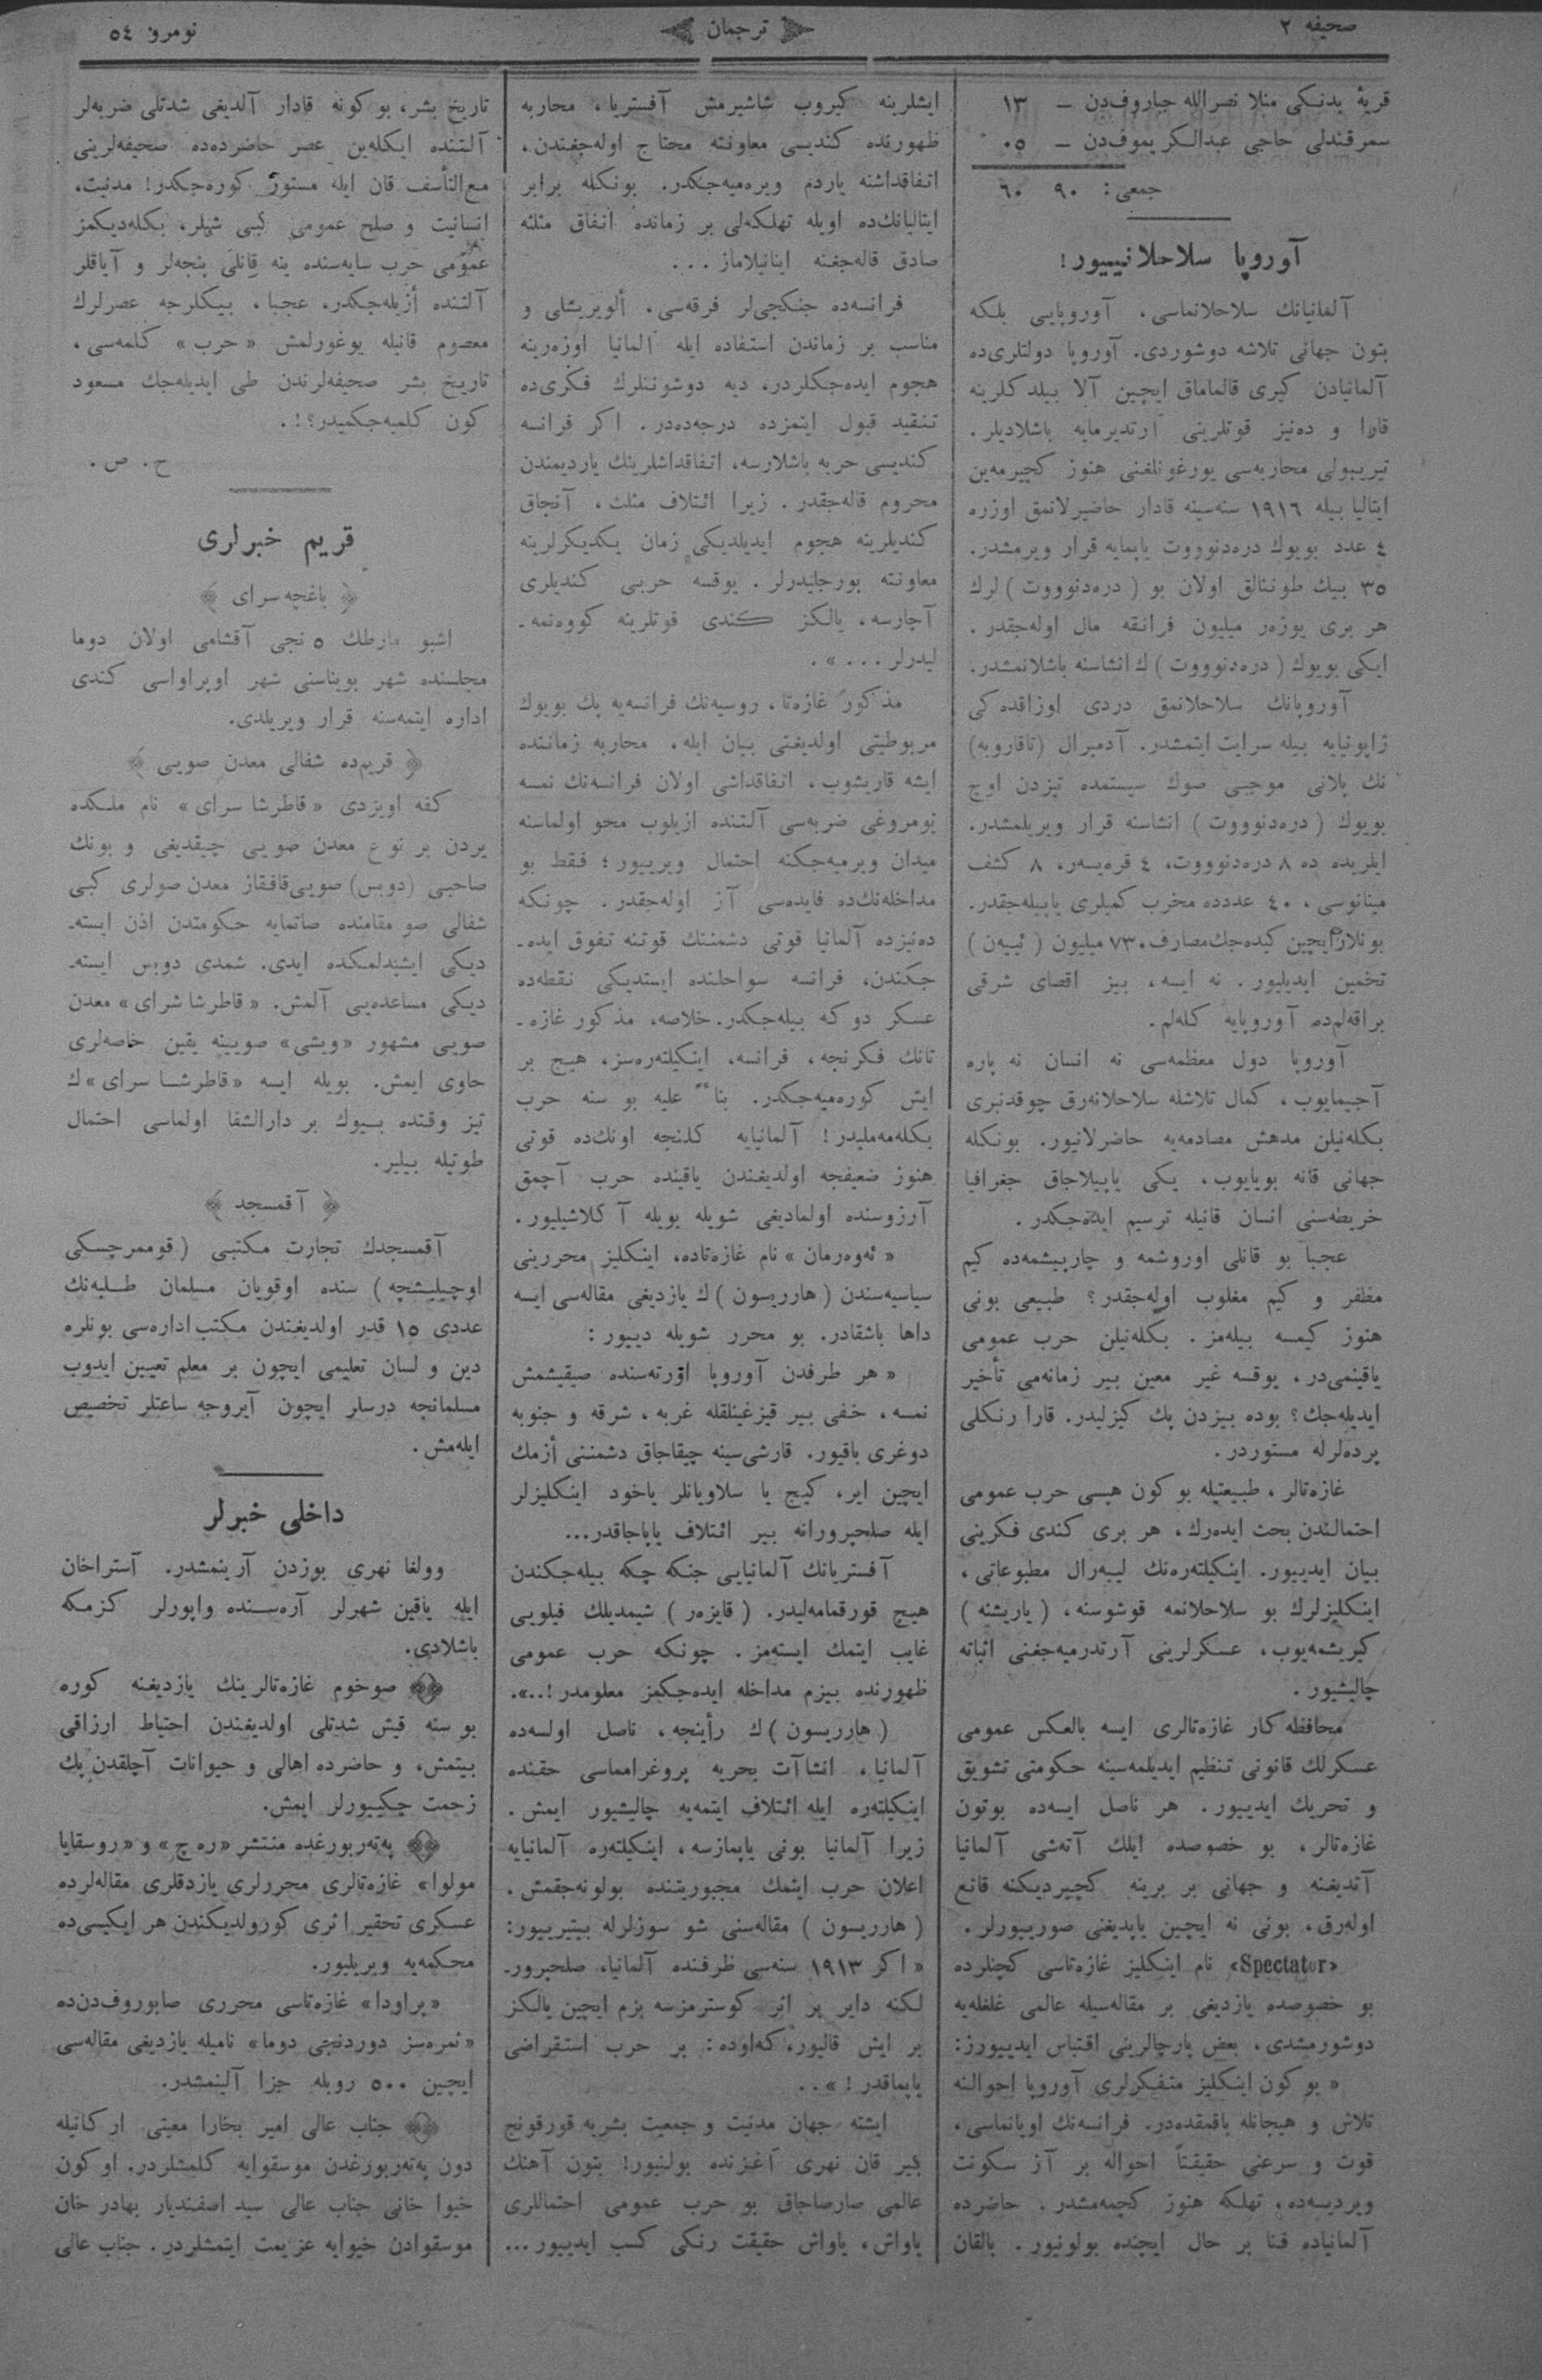 صحيفه ٢
ترجمان
نومرو ٥٤
قريهٔ يدنكى منلا نصرالله جباروف‌دن — ١٣
سمرقندلى حاجى عبدالكريموف‌دن — ٠٥
جمعى: ٩٠ ٦٠
آوروپا سلاحلانييور!
آلمانيانك سلاحلانماسى، آوروپايى بلكه
بتون جهانى تلاشه دوشوردى. آوروپا دولتلرى‌ده
آلمانيادن كيرى قالماماق ايچين آلا بيلدكلرينه
قارا و ده‌نيز قوتلرينى آرتديرمايه باشلاديلر.
تريپولى محاربه‌سى يورغونلغنى هنوز كچيرمه‌ين
ايتاليا بيله ١٩١٦ سنه‌سينه قادار حاضيرلانمق اوزره
٤ عدد بويوك دره‌دنووت ياپمايه قرار ويرمشدر.
٣٥ بيك طونتالق اولان بو (دره‌دنوووت) لرك
هر برى يوزه‌ر ميليون فرانقه مال اوله‌جقدر.
ايكى بويوك (دره‌دنوووت) ك انشاسنه باشلانمشدر.
آوروپانك سلاحلانمق دردى اوزاقده‌كى
ژاپونيايه بيله سرايت ايتمشدر. آدميرال (تاقاروبه)
نك پلانى موجبى صوك سيستمده تيزدن اوچ
بويوك (دره‌دنوووت) انشاسنه قرار ويريلمشدر.
ايلريده ده ٨ دره‌دنوووت، ٤ قره‌يسه‌ر، ٨ كشف
مينانوسى، ٤٠ عددده مخرب كميلرى ياپيله‌جقدر.
بونلار ايچين كيده‌جك مصارف ٧٣٠ ميليون (ئييه‌ن)
تخمين ايديليور. نه ايسه، بيز اقصاى شرقى
براقه‌لم‌ده آوروپايه كله‌لم.
آوروپا دول معظمه‌سى نه انسان نه پاره
آجيمايوب، كمال تلاشله سلاحلانه‌رق چوقدنبرى
بكله‌نيلن مدهش مصادمه‌يه حاضرلانيور. بونكله
جهانى قانه بويايوب، يكى ياپيلاجاق جغرافيا
خريطه‌سنى انسان قانيله ترسيم ايده‌جكدر.
عجبا بو قانلى اوروشمه و چارپيشمه‌ده كيم
مظفر و كيم مغلوب اوله‌جقدر؟ طبيعى بونى
هنوز كيمسه بيله‌مز. بكله‌نيلن حرب عمومى
ياقينمى‌در، يوقسه غير معين بير زمانه‌مى تأخير
ايديله‌جك؟ بوده بيزدن پك كيزليدر. قارا رنكلى
پرده‌لرله مستوردر.
غازه‌تالر، طبيعتيله بو كون هپسى حرب عمومى
احتمالندن بحث ايده‌رك، هر برى كندى فكرينى
بيان ايدييور. اينكيلته‌ره‌نك ليبه‌رال مطبوعاتى،
اينكليزلرك بو سلاحلانمه قوشوسنه، (ياريشنه)
كيريشمه‌يوب، عسكرلرينى آرتدرميه‌جغنى اثباته
چاليشيور.
محافظه‌كار غازه‌تالرى ايسه بالعكس عمومى
عسكرلك قانونى تنظيم ايديلمه‌سينه حكومتى تشويق
و تحريك ايدييور. هر ناصل ايسه‌ده بوتون
غازه‌تالر، بو خصوصده ايلك آتشى آلمانيا
آتديغنه و جهانى بر برينه كچيرديكنه قانع
اوله‌رق، بونى نه ايچين ياپديغنى صورييورلر.
«Spectator» نام اينكليز غازه‌تاسى كچنلرده
بو خصوصده يازديغى بر مقاله‌سيله عالمى غلغله‌يه
دوشورمشدى، بعض پارچالرينى اقتباس ايدييورز:
« بو كون اينكليز متفكرلرى آوروپا احوالنه
تلاش و هيجانله باقمقده‌در. فرانسه‌نك اويانماسى،
قوت و سرعتى حقيقتاً احواله بر آز سكونت
ويرديسه‌ده، تهلكه هنوز كچمه‌مشدر. حاضرده
آلمانياده فنا بر حال ايچنده بولونيور. بالقان
ايشلرينه كيروب شاشيرمش آفستريا، محاربه
ظهورنده كنديسى معاونته محتاج اوله‌جغندن،
اتفاقداشنه ياردم ويره‌ميه‌جكدر. بونكله برابر
ايتاليانك‌ده اويله تهلكه‌لى بر زمانده اتفاق مثلثه
صادق قاله‌جغنه اينانيلاماز...
فرانسه‌ده جنكجى‌لر فرقه‌سى، ألويريشلى و
مناسب بر زماندن استفاده ايله آلمانيا اوزه‌رينه
هجوم ايده‌جكلردر، ديه دوشوننلرك فكرى‌ده
تنقيد قبول ايتمزده درجه‌ده‌در. اكر فرانسه
كنديسى حربه باشلارسه، اتفاقداشلرينك يارديمندن
محروم قاله‌جقدر. زيرا ائتلاف مثلث، آنجاق
كنديلرينه هجوم ايديلديكى زمان يكديكرلرينه
معاونته بورجليدرلر. يوقسه حربى كنديلرى
آچارسه، يالكز كندى قوتلرينه كووه‌نمه-
ليدرلر...».
مذكور غازه‌تا، روسيه‌نك فرانسه‌يه پك بويوك
مربوطيتى اولديغنى بيان ايله، محاربه زماننده
ايشه قاريشوب، اتفاقداشى اولان فرانسه‌نك نمسه
يومروغى ضربه‌سى آلتنده ازيلوب محو اولماسنه
ميدان ويرميه‌جكنه احتمال ويرييور؛ فقط بو
مداخله‌نك‌ده فايده‌سى آز اوله‌جقدر. چونكه
ده‌نيزده آلمانيا قوتى دشمننك قوتنه تفوق ايده-
جكندن، فرانسه سواحلنده ايستديكى نقطه‌ده
عسكر دوكه بيله‌جكدر. خلاصه، مذكور غازه-
تانك فكرنجه، فرانسه، اينكيلته‌ره‌سز، هيچ بر
ايش كوره‌ميه‌جكدر. بناءً عليه بو سنه حرب
بكله‌مه‌مليدر! آلمانيايه كلنجه اونك‌ده قوتى
هنوز ضعيفجه اولديغندن ياقينده حرب آچمق
آرزوسنده اولماديغى شويله بويله آكلاشيليور.
« ئه‌وه‌رمان » نام غازه‌تاده، اينكليز محررينى
سياسيه‌سندن (هارريسون) ك يازديغى مقاله‌سى ايسه
داها باشقادر. بو محرر شويله دييور:
« هر طرفدن آوروپا اورته‌سنده صيقيشمش
نمسه، خفى بير قيزغينلقله غربه، شرقه و جنوبه
دوغرى باقيور. قارشى‌سينه چيقاجاق دشمننى أزمك
ايچين اير، كيج يا سلاويانلر ياخود اينكليزلر
ايله صلحپرورانه بير ائتلاف ياپاجاقدر...
آفستريانك آلمانيايى جنكه چكه بيله‌جكندن
هيچ قورقمامه‌ليدر. (قايزه‌ر) شيمديلك فيلويى
غايب ايتمك ايسته‌مز. چونكه حرب عمومى
ظهورنده بيزم مداخله ايده‌جكمز معلومدر!..».
(هارريسون) ك رأينجه، ناصل اولسه‌ده
آلمانيا، انشاآت بحريه پروغرامماسى حقنده
اينكيلته‌ره ايله ائتلاف ايتمه‌يه چاليشيور ايمش.
زيرا آلمانيا بونى ياپمازسه، اينكيلته‌ره آلمانيايه
اعلان حرب ايتمك مجبوريتنده بولونه‌جقمش.
(هارريسون) مقاله‌سنى شو سوزلرله بيتيرييور:
« اكر ١٩١٣ سنه‌سى ظرفنده آلمانيا، صلحپرور-
لكنه داير بر اثر كوسترمزسه بزم ايچين يالكز
بر ايش قاليور، كه‌اوده: بر حرب استقراضى
ياپماقدر!»..
ايشته جهان مدنيت و جمعيت بشريه قورقونج
بير قان نهرى آغزنده بولنيور! بتون آهنك
عالمى صارصاجاق بو حرب عمومى احتماللرى
ياواش، ياواش حقيقت رنكى كسب ايدييور...
تاريخ بشر، بو كونه قادار آلديغى شدتلى ضربه‌لر
آلتنده ايكله‌ين عصر حاضرده‌ده صحيفه‌لرينى
مع‌التأسف قان ايله مستور كوره‌جكدر! مدنيت،
انسانيت و صلح عمومى كبى شيلر، بكله‌ديكمز
عمومى حرب سايه‌سنده ينه قانلى پنجه‌لر و آياقلر
آلتنده أزيله‌جكدر، عجبا، بيكلرجه عصرلرك
معصوم قانيله يوغورلمش « حرب » كلمه‌سى،
تاريخ بشر صحيفه‌لرندن طى ايديله‌جك مسعود
كون كلميه‌جكميدر؟!.
ح. ص.
قريم خبرلرى
باغچه‌سراى
اشبو مارطك ٥ نجى آقشامى اولان دوما
مجلسنده شهر بويناسنى شهر اوپراواسى كندى
اداره ايتمه‌سنه قرار ويريلدى.
قريم‌ده شفالى معدن صويى
كفه اويزدى « قاطرشا سراى » نام ملكده
يردن بر نوع معدن صويى چيقديغى و بونك
صاحبى (دوبس) صويى قافقاز معدن صولرى كبى
شفالى صو مقامنده صاتمايه حكومتدن اذن ايسته-
ديكى ايشيدلمكده ايدى. شمدى دوبس ايسته-
ديكى مساعده‌يى آلمش. « قاطرشا شراى » معدن
صويى مشهور «ويشى» صويينه يقين خاصه‌لرى
حاوى ايمش. بويله ايسه « قاطرشا سراى »ك
تيز وقتده بيوك بر دارالشفا اولماسى احتمال
طوتيله بيلير.
آقمسجد
آقمسجدك تجارت مكتبى (قوممرچسكى
اوچيليشچه) سنده اوقويان مسلمان طلبه‌نك
عددى ١٥ قدر اولديغندن مكتب اداره‌سى بونلره
دين و لسان تعليمى ايچون بر معلم تعيين ايدوب
مسلمانچه درسلر ايچون آيروجه ساعتلر تخصيص
ايله‌مش.
داخلى خبرلر
وولغا نهرى بوزدن آرينمشدر. آستراخان
ايله ياقين شهرلر آره‌سنده واپورلر كزمكه
باشلادى.
صوخوم غازه‌تالرينك يازديغنه كوره
بو سنه قيش شدتلى اولديغندن احتياط ارزاقى
بيتمش، و حاضرده اهالى و حيوانات آچلقدن پك
زحمت چكييورلر ايمش.
په‌ته‌ربورغده منتشر «ره‌چ» و «روسقايا
مولوا» غازه‌تالرى محررلرى يازدقلرى مقاله‌لرده
عسكرى تحقير اثرى كورولديكندن هر ايكيسى‌ده
محكمه‌يه ويريليور.
«پراودا» غازه‌تاسى محررى صابوروف‌دن‌ده
«ثمره‌سز دوردنجى دوما» ناميله يازديغى مقاله‌سى
ايچين ٥٠٠ روبله جزا آلينمشدر.
جناب عالى امير بخارا معيتى اركانيله
دون په‌ته‌ربورغدن موسقوايه كلمشلردر. او كون
خيوا خانى جناب عالى سيد اصفنديار بهادر خان
موسقوادن خيوايه عزيمت ايتمشلردر. جناب عالى